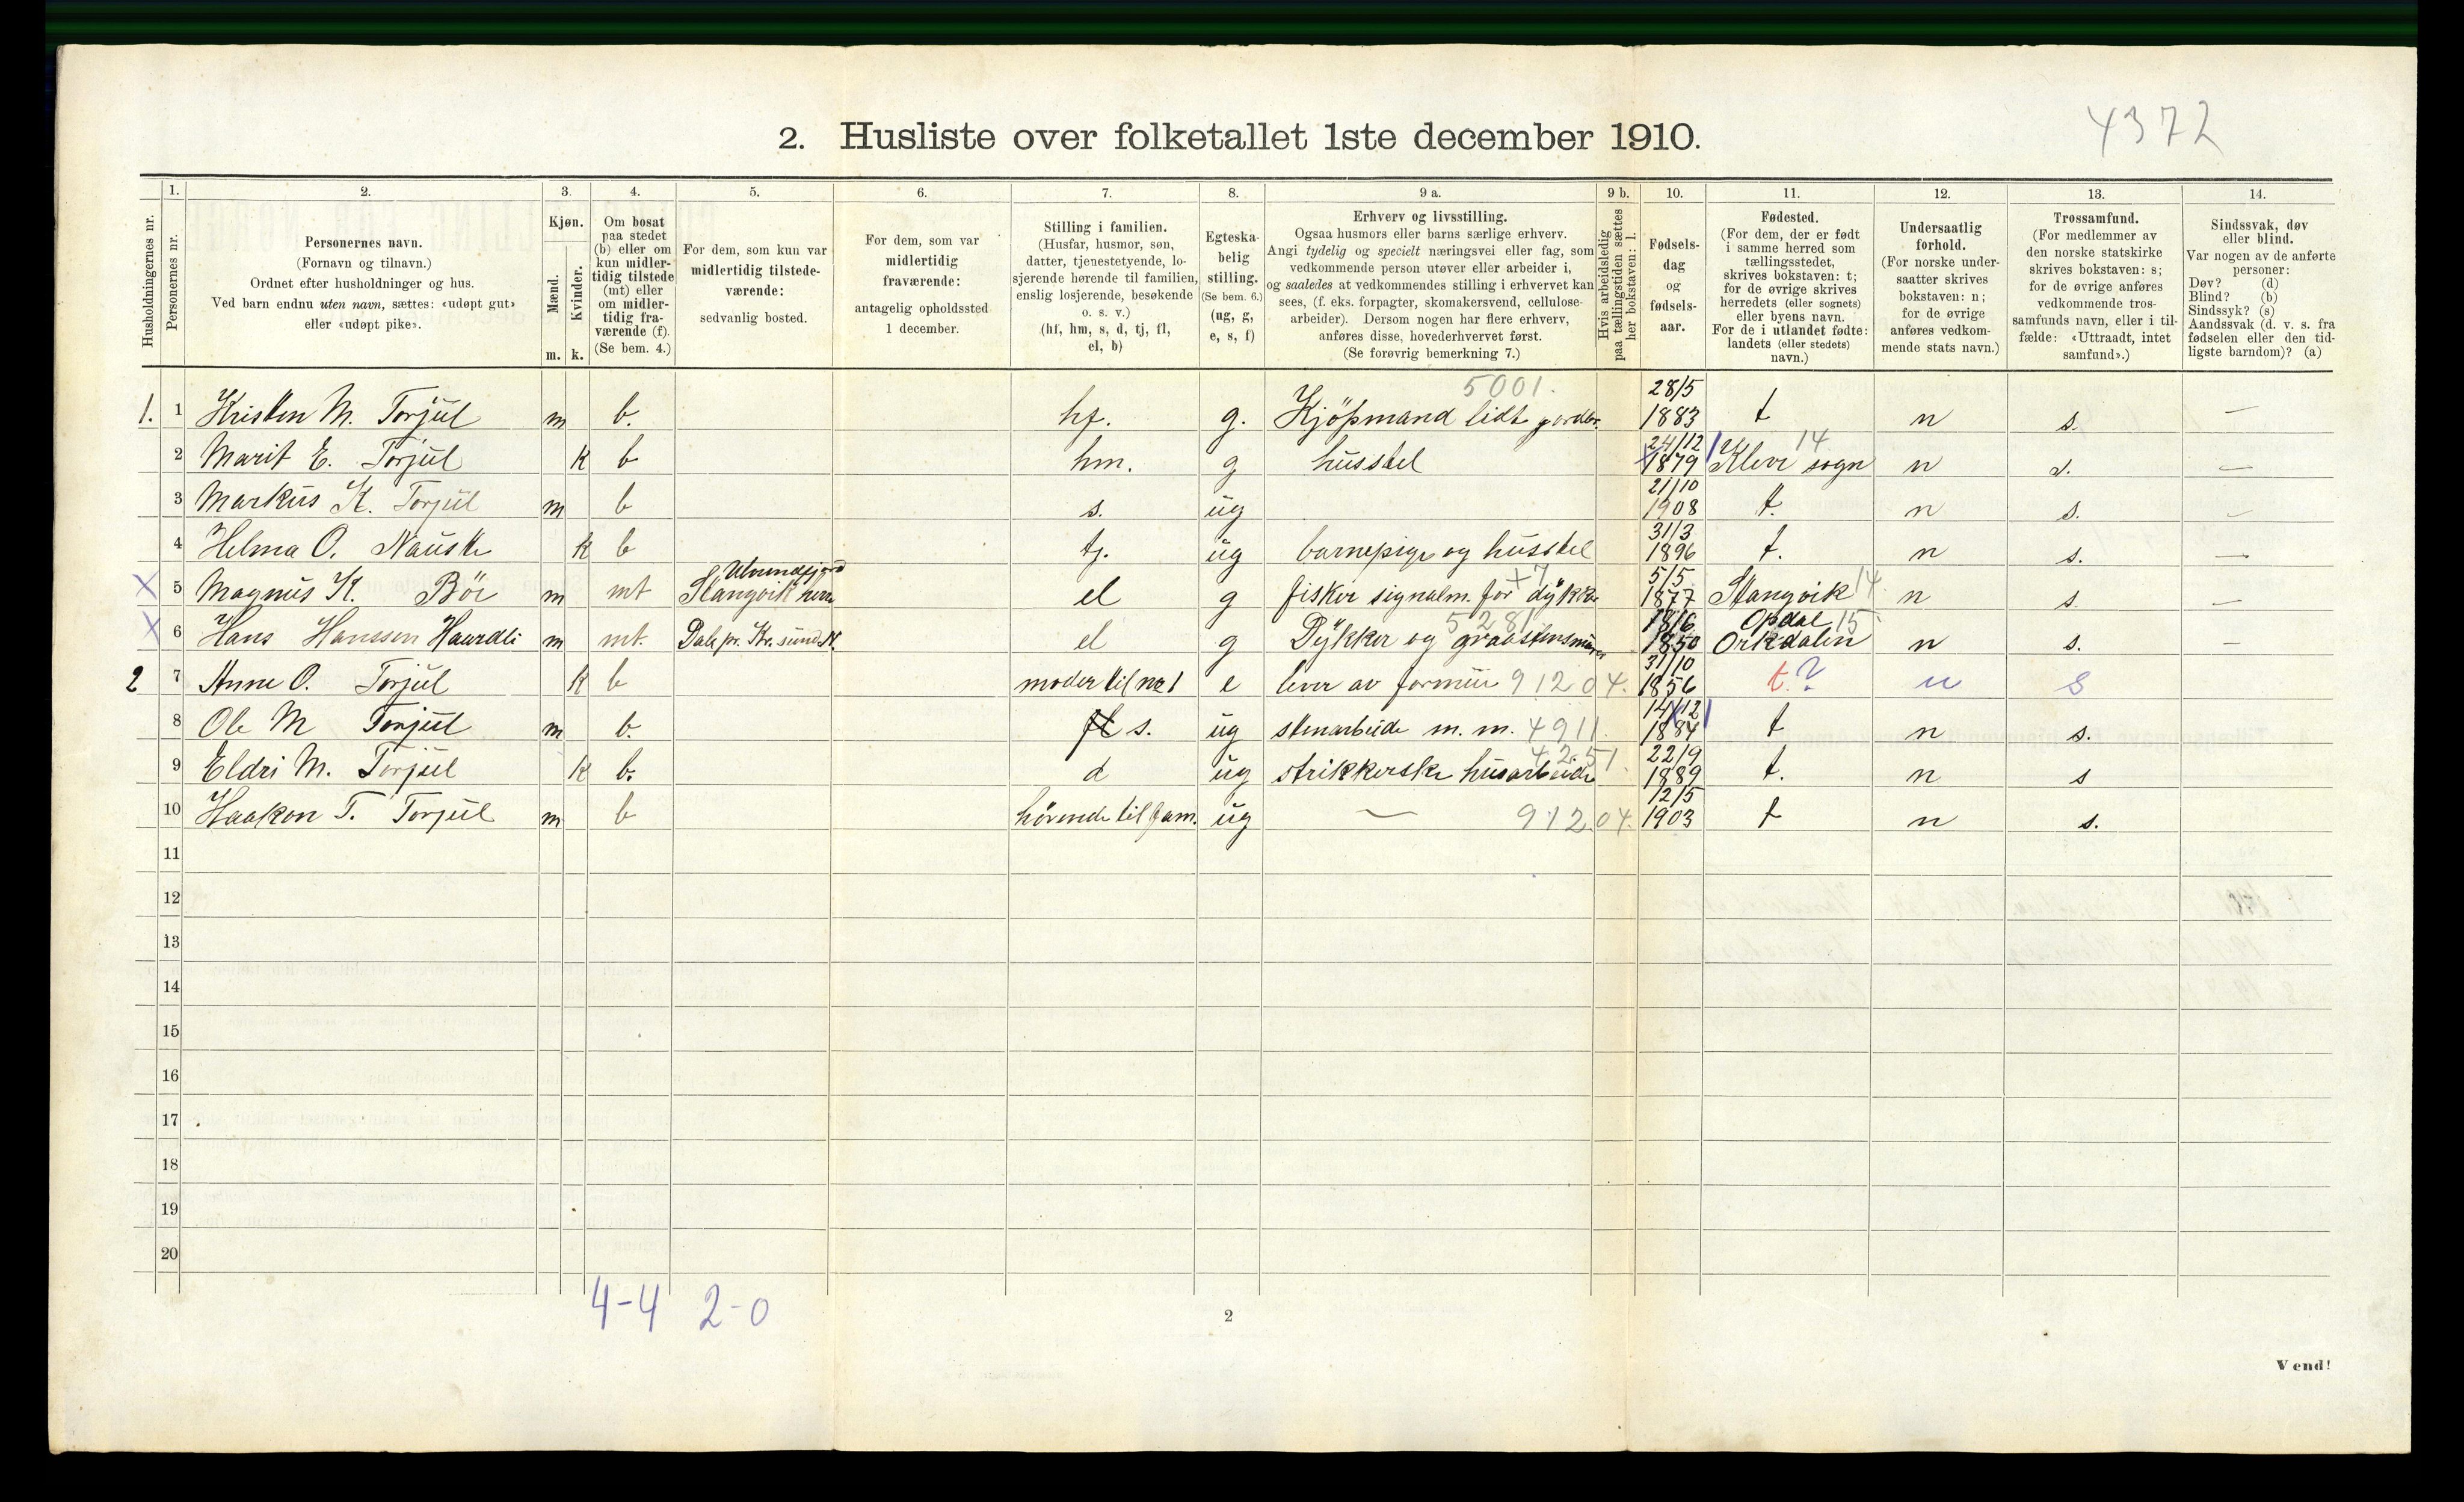 4372
2. Husliste over folketallet 1ste december 1910.
1. 2. 3. 4. 5. 6. 7. 8. 9 a. 9 b. 10. 11. 12. 13. 14.
Husholdningernes nr.
Personernes nr.
Personernes navn.
(Fornavn og tilnavn.)
Ordnet efter husholdninger og hus.
Ved barn endnu uten navn, sættes: «udøpt gut»
eller «udøpt pike».
Kjøn.
Mænd.
Kvinder.
m. k.
Om bosat
paa stedet
(b) eller om
kun midler-
tidig tilstede
(mt) eller
om midler-
tidig fra-
værende (f).
(Se bem. 4.)
For dem, som kun var
midlertidig tilstede-
værende:
sedvanlig bosted.
For dem, som var
midlertidig
fraværende:
antagelig opholdssted
1 december.
Stilling i familien.
(Husfar, husmor, søn,
datter, tjenestetyende, lo-
sjerende hørende til familien,
enslig losjerende, besøkende
o. s. v.)
(hf, hm, s, d, tj, fl,
el, b)
Egteska-
belig
stilling.
(Se bem. 6.)
(ug, g,
e, s, f)
Erhverv og livsstilling.
Ogsaa husmors eller barns særlige erhverv.
Angi tydelig og specielt næringsvei eller fag, som
vedkommende person utøver eller arbeider i,
og saaledes at vedkommendes stilling i erhvervet kan
sees, (f. eks. forpagter, skomakersvend, cellulose-
arbeider). Dersom nogen har flere erhverv,
anføres disse, hovederhvervet først.
(Se forøvrig bemerkning 7.)
Hvis arbeidsledig
paa tællingstiden sættes
her bokstaven: l.
Fødsels-
dag
og
fødsels-
aar.
Fødested.
(For dem, der er født
i samme herred som
tællingsstedet,
skrives bokstaven: t;
for de øvrige skrives
herredets (eller sognets)
eller byens navn.
For de i utlandet fødte:
landets (eller stedets)
navn.)
Undersaatlig
forhold.
(For norske under-
saatter skrives
bokstaven: n;
for de øvrige
anføres vedkom-
mende stats navn.)
Trossamfund.
(For medlemmer av
den norske statskirke
skrives bokstaven: s;
for de øvrige anføres
vedkommende tros-
samfunds navn, eller i til-
fælde: «Uttraadt, intet
samfund».)
Sindssvak, døv
eller blind.
Var nogen av de anførte
personer:
Døv? (d)
Blind? (b)
Sindssyk? (s)
Aandssvak (d. v. s. fra
fødselen eller den tid-
ligste barndom)? (a)
5001. 28/5
1. 1 Kristen M. Torjul m b. hf. g. Kjöpmand lidt 1883 t n s. —
24/12 14
2 Marit E. Torjul k b hm. g husstel 1879 sogn n s. —
21/10
3 Markus K. Torjul m b s. ug 1908 t. n s. —
31/3
4 Helma O. k b tj. ug barnepige og husstel 1896 t. n s. —
Ulvundfjord +7 5/5
X 5 Magnus K. Böe m mt Stangvik herr. el g fisker signalm. for dykker 1877 Stangvik 14 n s. —
5281 18/6 Opdal 15
X 6 Hans Hanssen m mt. Dale pr. Kr.sund N. el g Dykker og 1850 Orkdalen n s. —
31/10
2 7 Anne O. Torjul k b moder til no 1 e lever av formue 91204. 1856 t.? n s
14/12
8 Ole M Torjul m b. fl s. ug stenarbeide m. m. 4911. 1884 t n s.
4251. 22/9
9 Eldri M. Torjul k b. d ug strikkerske husarbeide 1889 t. n s
12/5
10 Haakon T. Torjul m b hörende til fam. ug — 91204. 1903 t n s.
11
12
13
14
15
16
17
18
19
20
4-4 2-0
2
Vend!